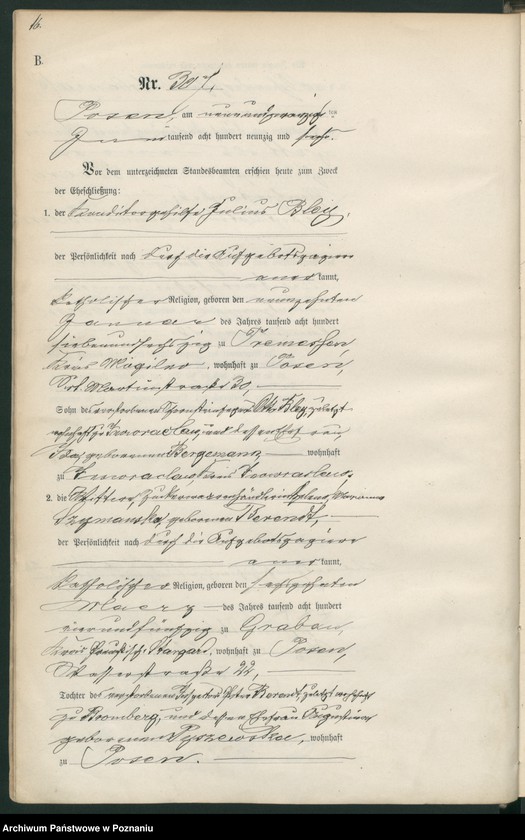 16.
B.
Nr. 307.
Posen, am neunundzwanzigsten
Juni tausend acht hundert neunzig und sechs.
Vor dem unterzeichneten Standesbeamten erschien heute zum Zweck
der Eheschließung:
1. der Konditorgehilfe Julius Bley,
der Persönlichkeit nach durch die Aufgebotspapiere
aner kannt,
katholischer Religion, geboren den neunzehnten
Januar des Jahres tausend acht hundert
siebenundsechszig zu Tremessen,
Kreis Mogilno, wohnhaft zu Posen,
St. Martinstraße 30,
Sohn des verstorbenen Bley, zuletzt
wohnhaft zu Inowrazlaw, und dessen Ehefrau
Ida, geborenen Bergemann, wohnhaft
zu Inowrazlaw, Kreis Inowrazlaw.
2. die Wittwe, Helena Marianna
Szymanska, geborenen Berendt,
der Persönlichkeit nach durch die Aufgebotspapiere
aner kannt,
katholischer Religion, geboren den sechzehnten
Maerz des Jahres tausend acht hundert
vierundfünfzig zu Grabau,
Kreis Preußisch Stargard, wohnhaft zu Posen,
straße 22,
Tochter des verstorbenen Inspektors Peter Berendt, zuletzt wohnhaft
zu Bromberg, und dessen Ehefrau Augustina
geborenen wohnhaft
zu Posen.
Archiwum Państwowe w Poznaniu